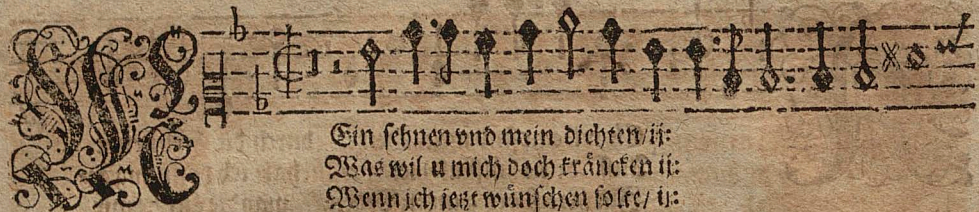 MEin sehnen vnd mein dichten/ ij:
Was wil u mich doch kräncken ij:
Wenn jch jetzt wünschen solte/ ij: